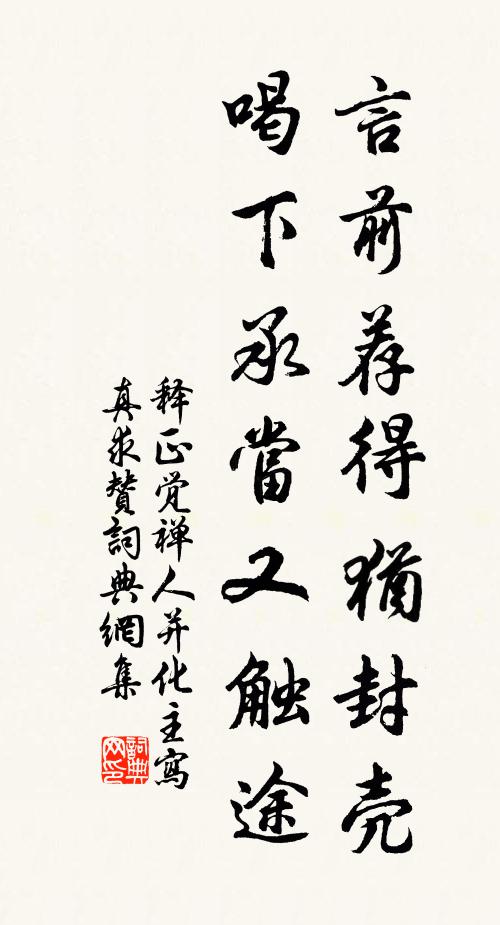 言前荐得犹封壳
喝下承當又触途
释正觉禅人并化主寫
真求赞詞典網集
詞典网印